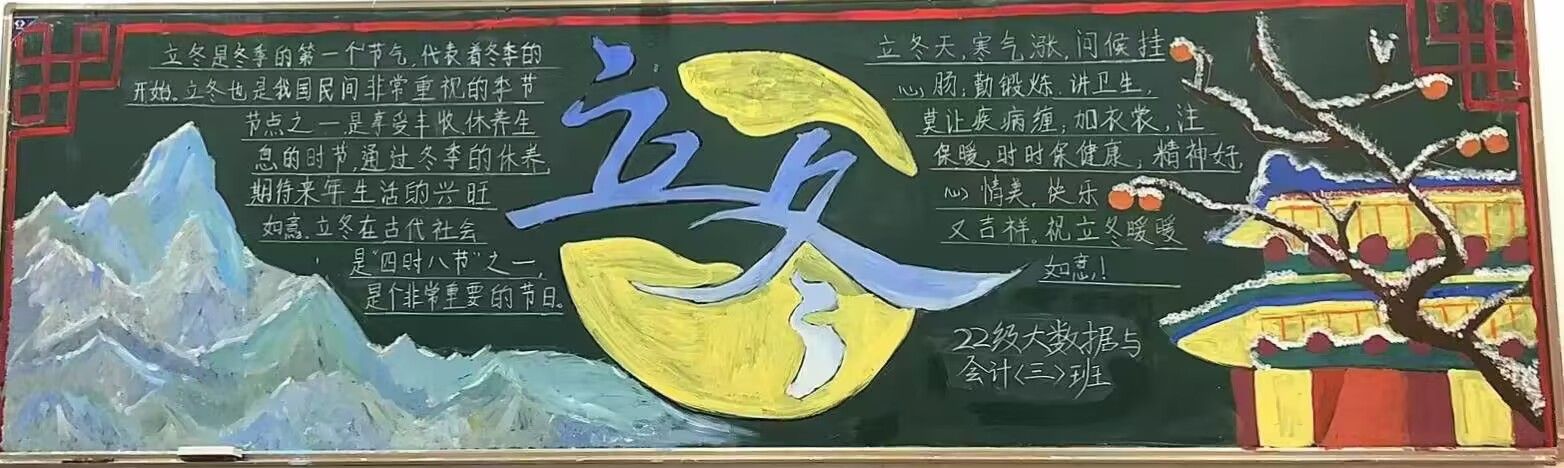 立冬是冬季的第一个节气,代表着冬季的
开始。立冬也是我国民间非常重视的季节
节点之一,是享受丰收,休养生
息的时节,通过冬季的休养,
期待来年生活的兴旺
如意。立冬在古代社会
是“四时八节”之一,
是个非常重要的节日。
立冬
立冬天,寒气涨,问候挂
心肠;勤锻炼,讲卫生,
莫让疾病缠;加衣裳,注
保暖,时时保健康;精神好,
心情美,快乐
又吉祥。祝立冬暖暖
如意!
22级大数据与
会计<三>班